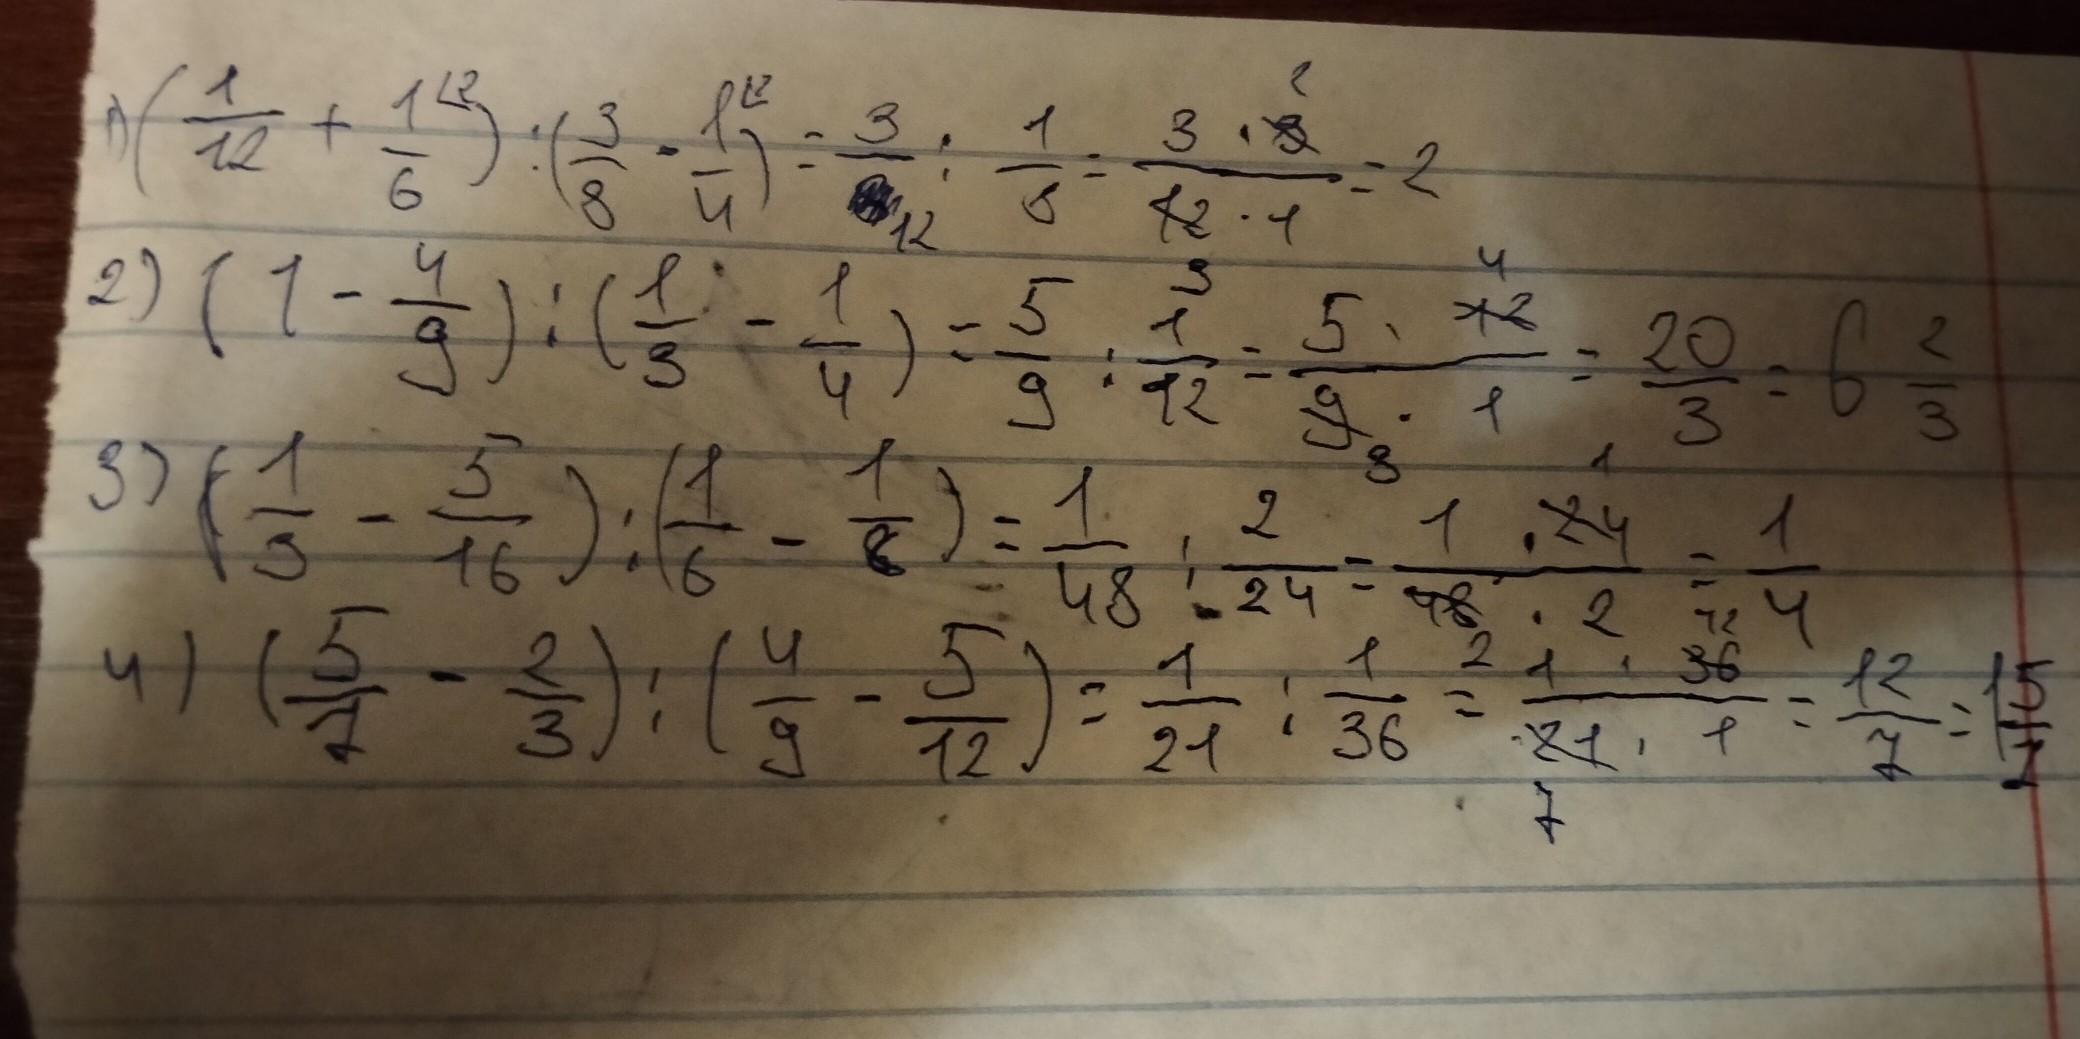 1) (1/12 + 1/6 ⌊2) : (3/8 - 1/4 ⌊2) = 3/12 : 1/8 = 3 · 8 2/12 · 1 = 2
2) (1 - 4/9) : (1/3 - 1/4) = 5/9 : 1/12 = 5 · 12 4/9 3 · 1 = 20/3 = 6 2/3
3) (1/3 - 5/16) : (1/6 - 1/8) = 1/48 : 2/24 = 1 · 24 1/48 2 · 2 = 1/4
4) (5/7 - 2/3) : (4/9 - 5/12) = 1/21 : 1/36 = 1 · 36 12/21 7 · 1 = 12/7 = 1 5/7